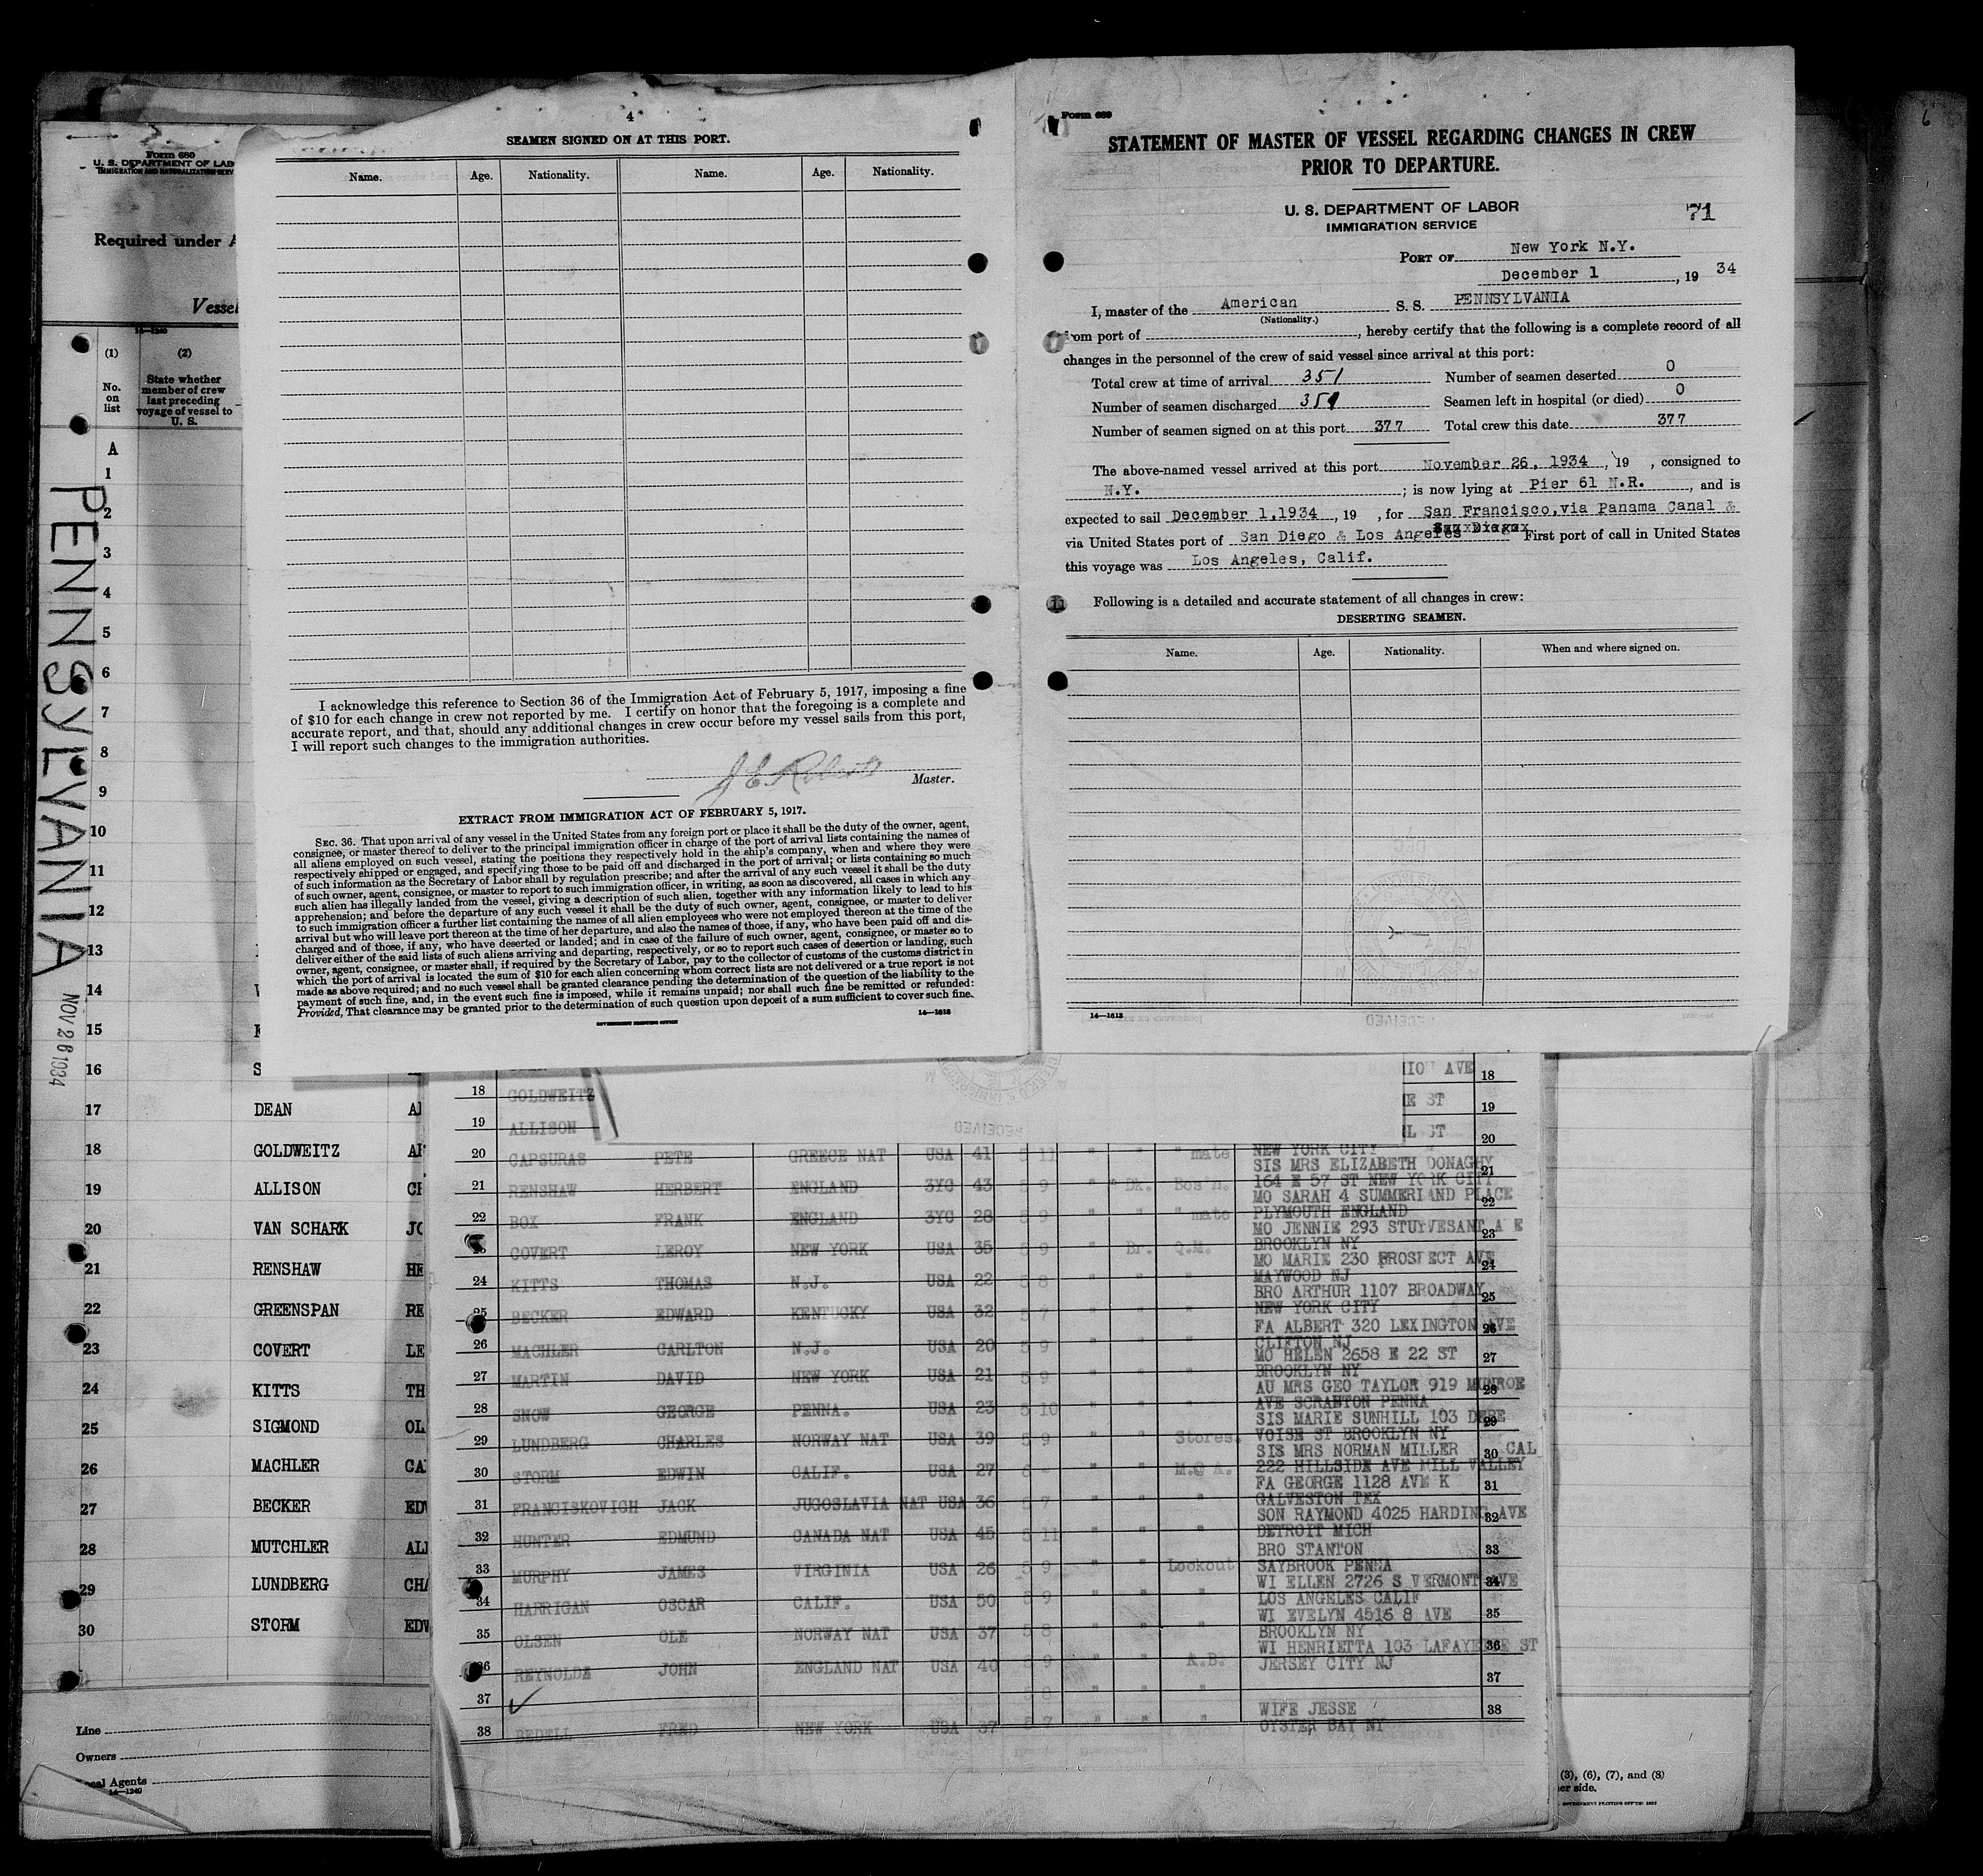 4
SEAMEN SIGNED ON AT THIS PORT.
Name. Age. Nationality. Name. Age. Nationality.
I acknowledge this reference to Section 36 of the Immigration Act of February 5, 1917, imposing a fine
of $10 for each change in crew not reported by me. I certify on honor that the foregoing is a complete and
accurate report, and that, should any additional changes in crew occur before my vessel sails from this port,
I will report such changes to the immigration authorities.
Master.
EXTRACT FROM IMMIGRATION ACT OF FEBRUARY 5, 1917.
SEC. 36. That upon arrival of any vessel in the United States from any foreign port or place it shall be the duty of the owner, agent,
consignee, or master thereof to deliver to the principal immigration officer in charge of the port of arrival lists containing the names of
all aliens employed on such vessel, stating the positions they respectively hold in the ship's company, when and where they were
respectively shipped or engaged, and specifying those to be paid off and discharged in the port of arrival; or lists containing so much
of such information as the Secretary of Labor shall by regulation prescribe; and after the arrival of any such vessel it shall be the duty
of such owner, agent, consignee, or master to report to such immigration officer, in writing, as soon as discovered, all cases in which any
such alien has illegally landed from the vessel, giving a description of such alien, together with any information likely to lead to his
apprehension; and before the departure of any such vessel it shall be the duty of such owner, agent, consignee, or master to deliver
to such immigration officer a further list containing the names of all alien employees who were not employed thereon at the time of the
arrival but who will leave port thereon at the time of her departure, and also the names of those, if any, who have been paid off and dis-
charged and of those, if any, who have deserted or landed; and in case of the failure of such owner, agent, consignee, or master so to
deliver either of the said lists of such aliens arriving and departing, respectively, or so to report such cases of desertion or landing, such
owner, agent, consignee, or master shall, if required by the Secretary of Labor, pay to the collector of customs of the customs district in
which the port of arrival is located the sum of $10 for each alien concerning whom correct lists are not delivered or a true report is not
made as above required; and no such vessel shall be granted clearance pending the determination of the question of the liability to the
payment of such fine, and, in the event such fine is imposed, while it remains unpaid; nor shall such fine be remitted or refunded:
Provided, That clearance may be granted prior to the determination of such question upon deposit of a sum sufficient to cover such fine.
GOVERNMENT PRINTING OFFICE 14—1613
Form 689
STATEMENT OF MASTER OF VESSEL REGARDING CHANGES IN CREW
PRIOR TO DEPARTURE.
U. S. DEPARTMENT OF LABOR
IMMIGRATION SERVICE
71
PORT OF New York N.Y.
December 1, 19 34
I, master of the American S. S. PENNSYLVANIA
(Nationality.)
from port of , hereby certify that the following is a complete record of all
changes in the personnel of the crew of said vessel since arrival at this port:
Total crew at time of arrival 351 Number of seamen deserted 0
Number of seamen discharged 351 Seamen left in hospital (or died) 0
Number of seamen signed on at this port 377 Total crew this date 377
The above-named vessel arrived at this port November 26, 1934, 19 , consigned to
N.Y. ; is now lying at Pier 61 N.R. , and is
expected to sail December 1,1934, 19 , for San Francisco, via Panama Canal &
via United States port of San Diego & Los Angeles First port of call in United States
this voyage was Los Angeles, Calif.
Following is a detailed and accurate statement of all changes in crew:
DESERTING SEAMEN.
Name. Age. Nationality. When and where signed on.
14—1613
Form 680
U. S. DEPARTMENT OF LAB
IMMIGRATION AND NATURALIZATION SERV
Required under A
Vessel
14—1240
(1) (2)
No. on list
State whether
member of crew
last preceding
voyage of vessel to
U. S.
PENNSYLVANIA
NOV 26 1934
A
1
2
3
4
5
6
7
8
9
10
11
12
13
14
15
16 S
17 DEAN
18 GOLDWEITZ
19 ALLISON
20 VAN SCHARK JO
21 RENSHAW HE
22 GREENSPAN RE
23 COVERT LE
24 KITTS TH
25 SIGMOND OL
26 MACHLER CA
27 BECKER EDW
28 MUTCHLER AL
29 LUNDBERG CHA
30 STORM EDW
Line
Owners
Local Agents
14—1240
AVE 18
18 GOLDWEITZ
ST 19
19 ALLISON
ST 20
20 CAPSURAS PETE GREECE NAT USA 41 5 11 " " " mate NEW YORK CITY
SIS MRS ELIZABETH DONAGHY 21
21 RENSHAW HERBERT ENGLAND 3YG 43 5 9 " Dk. Bos'n. 164 E 57 ST NEW YORK CITY
MO SARAH 4 SUMMERLAND PLACE 22
22 BOX FRANK ENGLAND 3YG 28 5 9 " " " mate PLYMOUTH ENGLAND
MO JENNIE 293 STUYVESANT A E 23
COVERT LEROY NEW YORK USA 35 5 9 " Br. Q.M. BROOKLYN NY
MO MARIE 230 PROSPECT AVE 24
24 KITTS THOMAS N.J. USA 22 5 8 " " " MAYWOOD NJ
BRO ARTHUR 1107 BROADWAY 25
25 BECKER EDWARD KENTUCKY USA 32 5 7 " " " NEW YORK CITY
FA ALBERT 320 LEXINGTON AVE 26
26 MACHLER CARLTON N.J. USA 20 5 9 " " " CLIFTON NJ
MO HELEN 2658 E 22 ST 27
27 MARTIN DAVID NEW YORK USA 21 5 9 " " " BROOKLYN NY
AU MRS GEO TAYLOR 919 MUNROE 28
28 SNOW GEORGE PENNA. USA 23 5 10 " " " AVE SCRANTON PENNA
SIS MARIE SUNHILL 103 DEBE 29
29 LUNDBERG CHARLES NORWAY NAT USA 39 5 9 " " Stores. VOISE ST BROOKLYN NY
SIS MRS NORMAN MILLER 30 CAL
30 STORM EDWIN CALIF. USA 27 6 - " " M.@ A. 222 HILLSIDE AVE MILL VALLEY
FA GEORGE 1128 AVE K 31
31 FRANCISKOVICH JACK JUGOSLAVIA NAT USA 36 5 7 " " " GALVESTON TEX
SON RAYMOND 4025 HARDING AVE 32
32 HUNTER EDMUND CANADA NAT USA 45 5 11 " " " DETROIT MICH
BRO STANTON 33
33 MURPHY JAMES VIRGINIA USA 26 5 9 " " Lookout SAYBROOK PENNA
WI ELLEN 2726 S VERMONT AVE 34
34 HARRIGAN OSCAR CALIF. USA 50 5 9 " " " LOS ANGELES CALIF
WI EVELYN 4516 8 AVE 35
35 OLSEN OLE NORWAY NAT USA 37 5 8 " " " BROOKLYN NY
WI HENRIETTA 103 LAFAYETTE ST 36
36 REYNOLDS JOHN ENGLAND NAT USA 40 5 9 " " A.B. JERSEY CITY NJ
37
37 5 8 " " "
WIFE JESSE 38
38 BEDELL FRED NEW YORK USA 37 5 7 " " " OYSTER BAY NY
(3), (6), (7), and (8)
er side.
GOVERNMENT PRINTING OFFICE